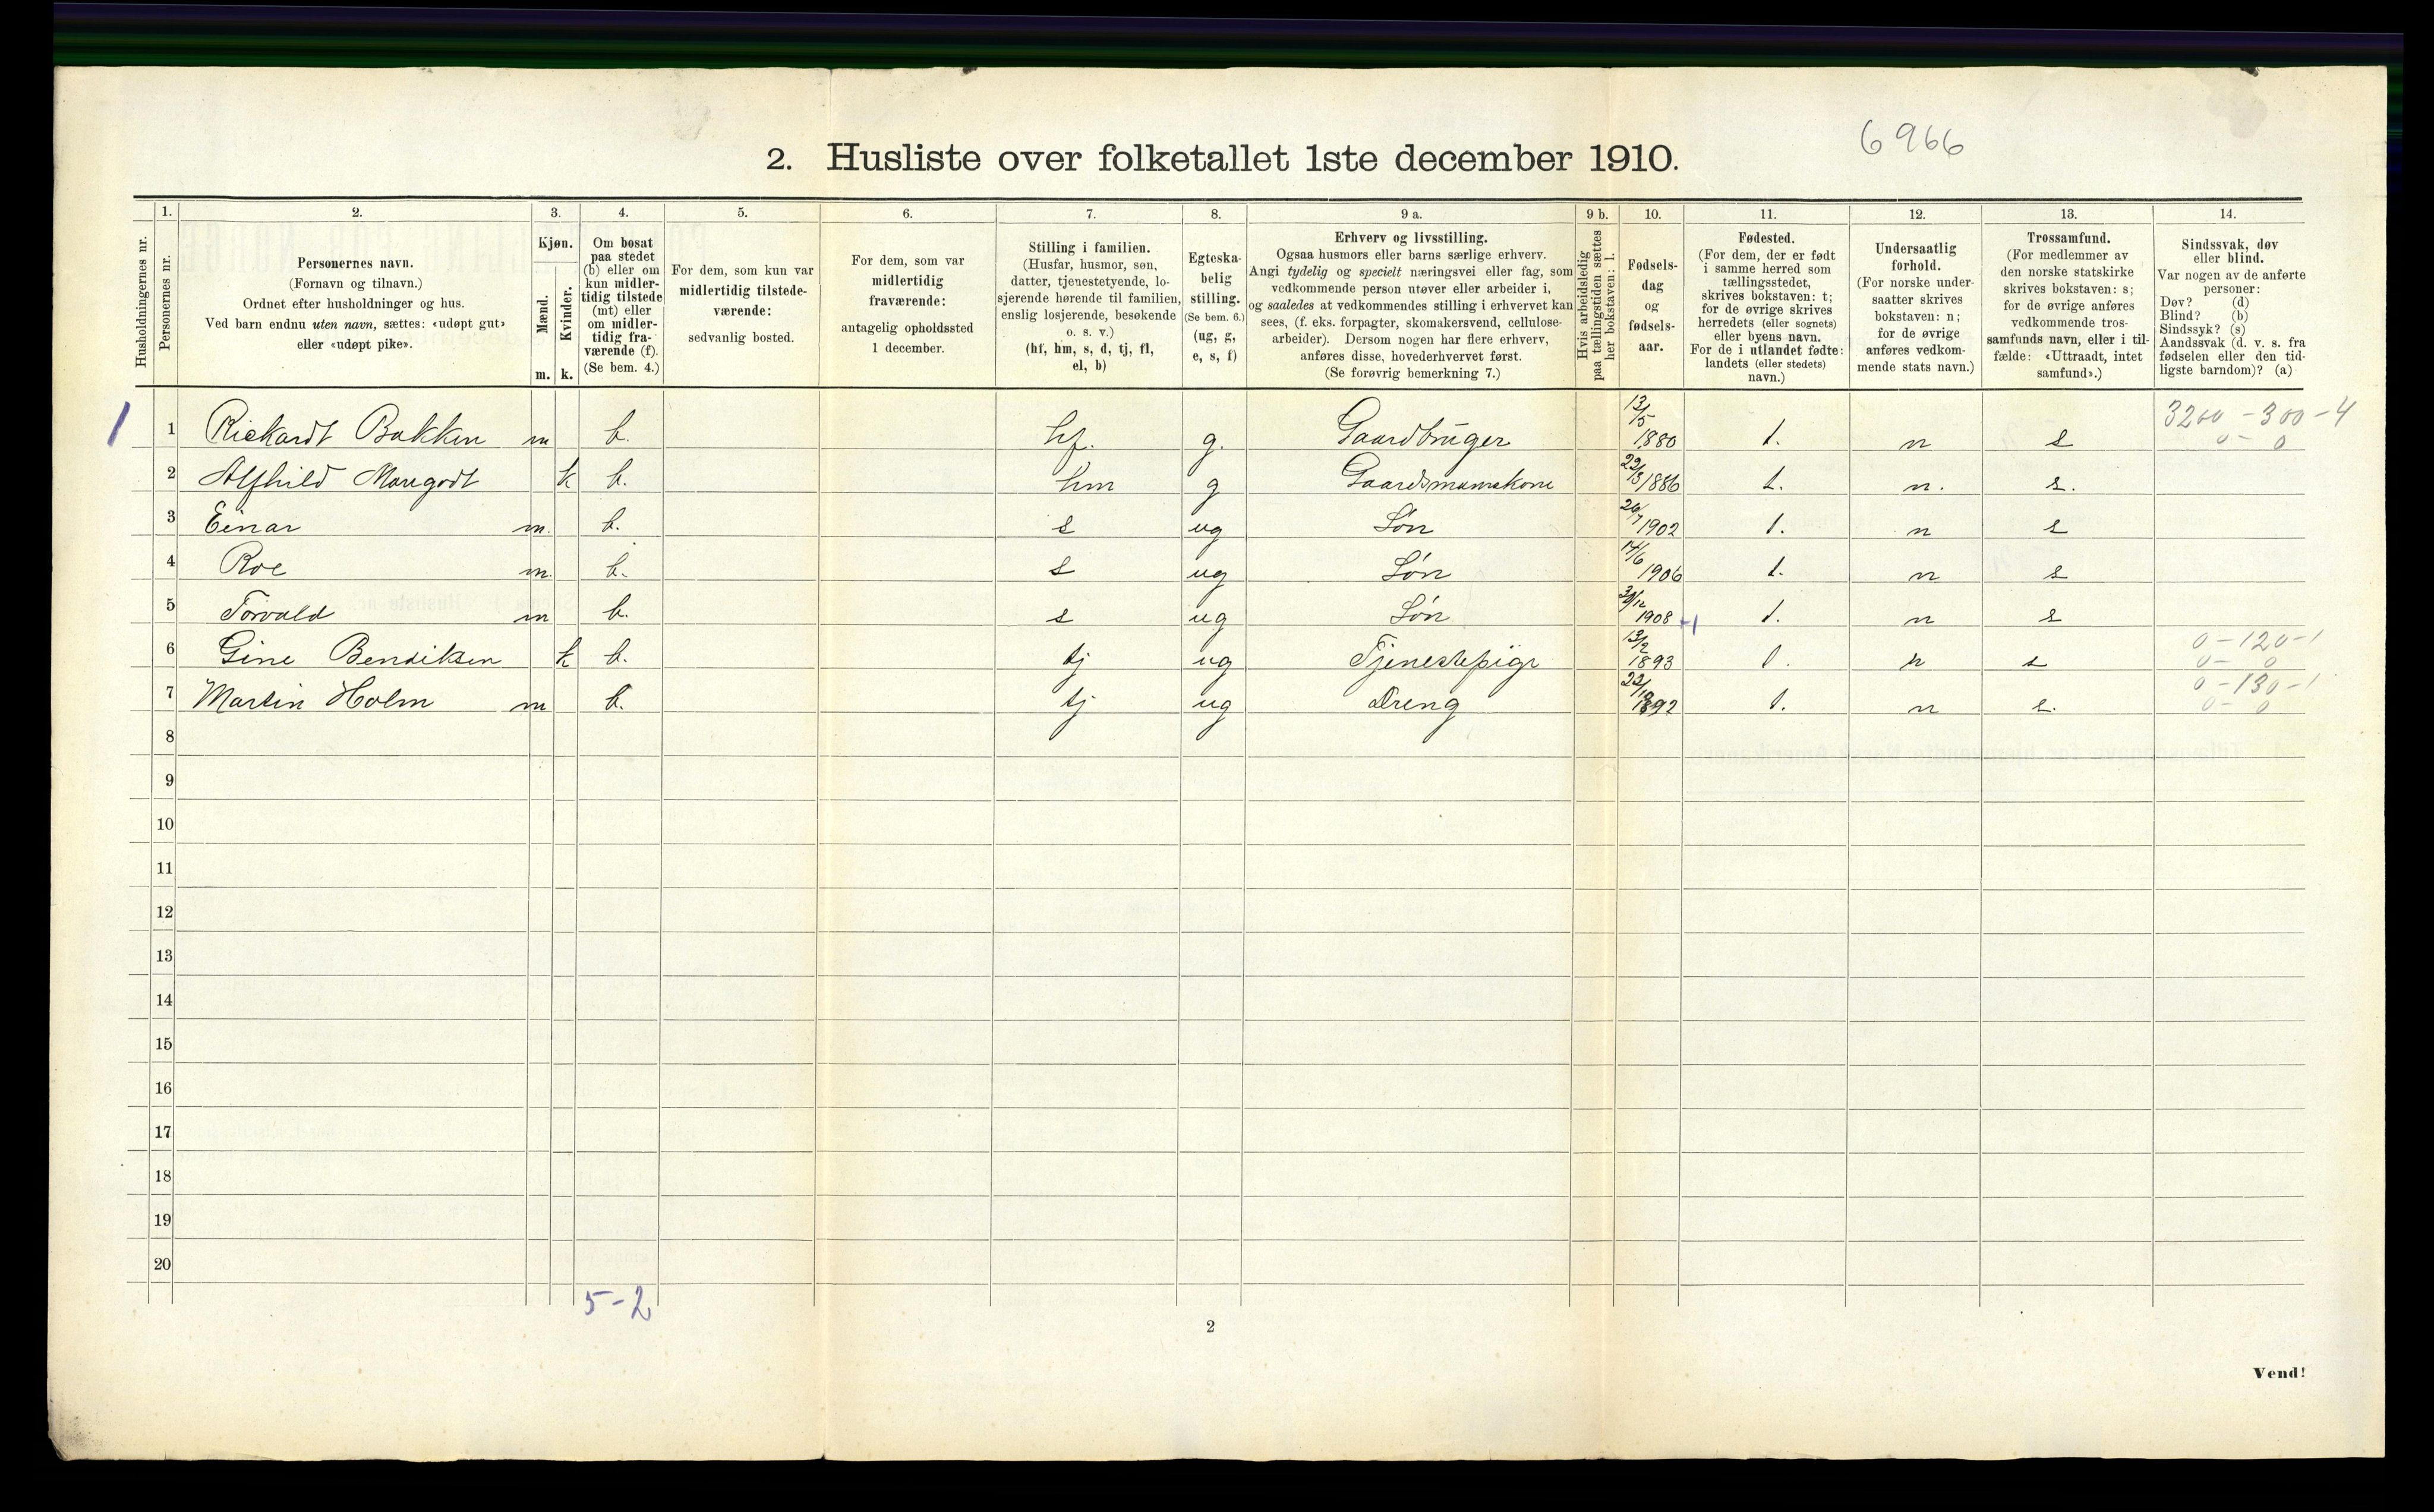 6966
2. Husliste over folketallet 1ste december 1910.
Husholdningernes nr.
1.
Personernes nr.
2.
Personernes navn.
(Fornavn og tilnavn.)
Ordnet efter husholdninger og hus.
Ved barn endnu uten navn, sættes: «udøpt gut»
eller «udøpt pike».
3.
Kjøn.
Mænd.
Kvinder.
m. k.
4.
Om bosat
paa stedet
(b) eller om
kun midler-
tidig tilstede
(mt) eller
om midler-
tidig fra-
værende (f).
(Se bem. 4.)
5.
For dem, som kun var
midlertidig tilstede-
værende:
sedvanlig bosted.
6.
For dem, som var
midlertidig
fraværende:
antagelig opholdssted
1 december.
7.
Stilling i familien.
(Husfar, husmor, søn,
datter, tjenestetyende, lo-
sjerende hørende til familien,
enslig losjerende, besøkende
o. s. v.)
(hf, hm, s, d, tj, fl,
el, b)
8.
Egteska-
belig
stilling.
(Se bem. 6.)
(ug, g,
e, s, f)
9 a.
Erhverv og livsstilling.
Ogsaa husmors eller barns særlige erhverv.
Angi tydelig og specielt næringsvei eller fag, som
vedkommende person utøver eller arbeider i,
og saaledes at vedkommendes stilling i erhvervet kan
sees, (f. eks. forpagter, skomakersvend, cellulose-
arbeider). Dersom nogen har flere erhverv,
anføres disse, hovederhvervet først.
(Se forøvrig bemerkning 7.)
9 b.
Hvis arbeidsledig
paa tællingstiden sættes
her bokstaven: l.
10.
Fødsels-
dag
og
fødsels-
aar.
11.
Fødested.
(For dem, der er født
i samme herred som
tællingsstedet,
skrives bokstaven: t;
for de øvrige skrives
herredets (eller sognets)
eller byens navn.
For de i utlandet fødte:
landets (eller stedets)
navn.)
12.
Undersaatlig
forhold.
(For norske under-
saatter skrives
bokstaven: n;
for de øvrige
anføres vedkom-
mende stats navn.)
13.
Trossamfund.
(For medlemmer av
den norske statskirke
skrives bokstaven: s;
for de øvrige anføres
vedkommende tros-
samfunds navn, eller i til-
fælde: «Uttraadt, intet
samfund».)
14.
Sindssvak, døv
eller blind.
Var nogen av de anførte
personer:
Døv? (d)
Blind? (b)
Sindssyk? (s)
Aandssvak (d. v. s. fra
fødselen eller den tid-
ligste barndom)? (a)
1 1 Rickardt Bakken m b. hf. g. Gaardbruger 13/5 1880 t. n s 3200-300-4 0-0
2 Alfhild Margodt k b. hm g Gaardsmannskone 22/3 1886 t. n. s.
3 Einar m. b. s ug Søn 26/7 1902 t. n s
4 Roe m. b. s ug Søn 14/6 1906 t. n s
5 Torvald m b. s ug Søn 1908 t. n s
6 Gine Bendiksen k b. tj ug Tjenestepige 13/2 1893 t. n s 0-120-1 0-0
7 Martin Holm m b. tj ug Dreng 22/10 1892 t. n s. 0-130-1 0-0
8
9
10
11
12
13
14
15
16
17
18
19
20
5-2
2
Vend!